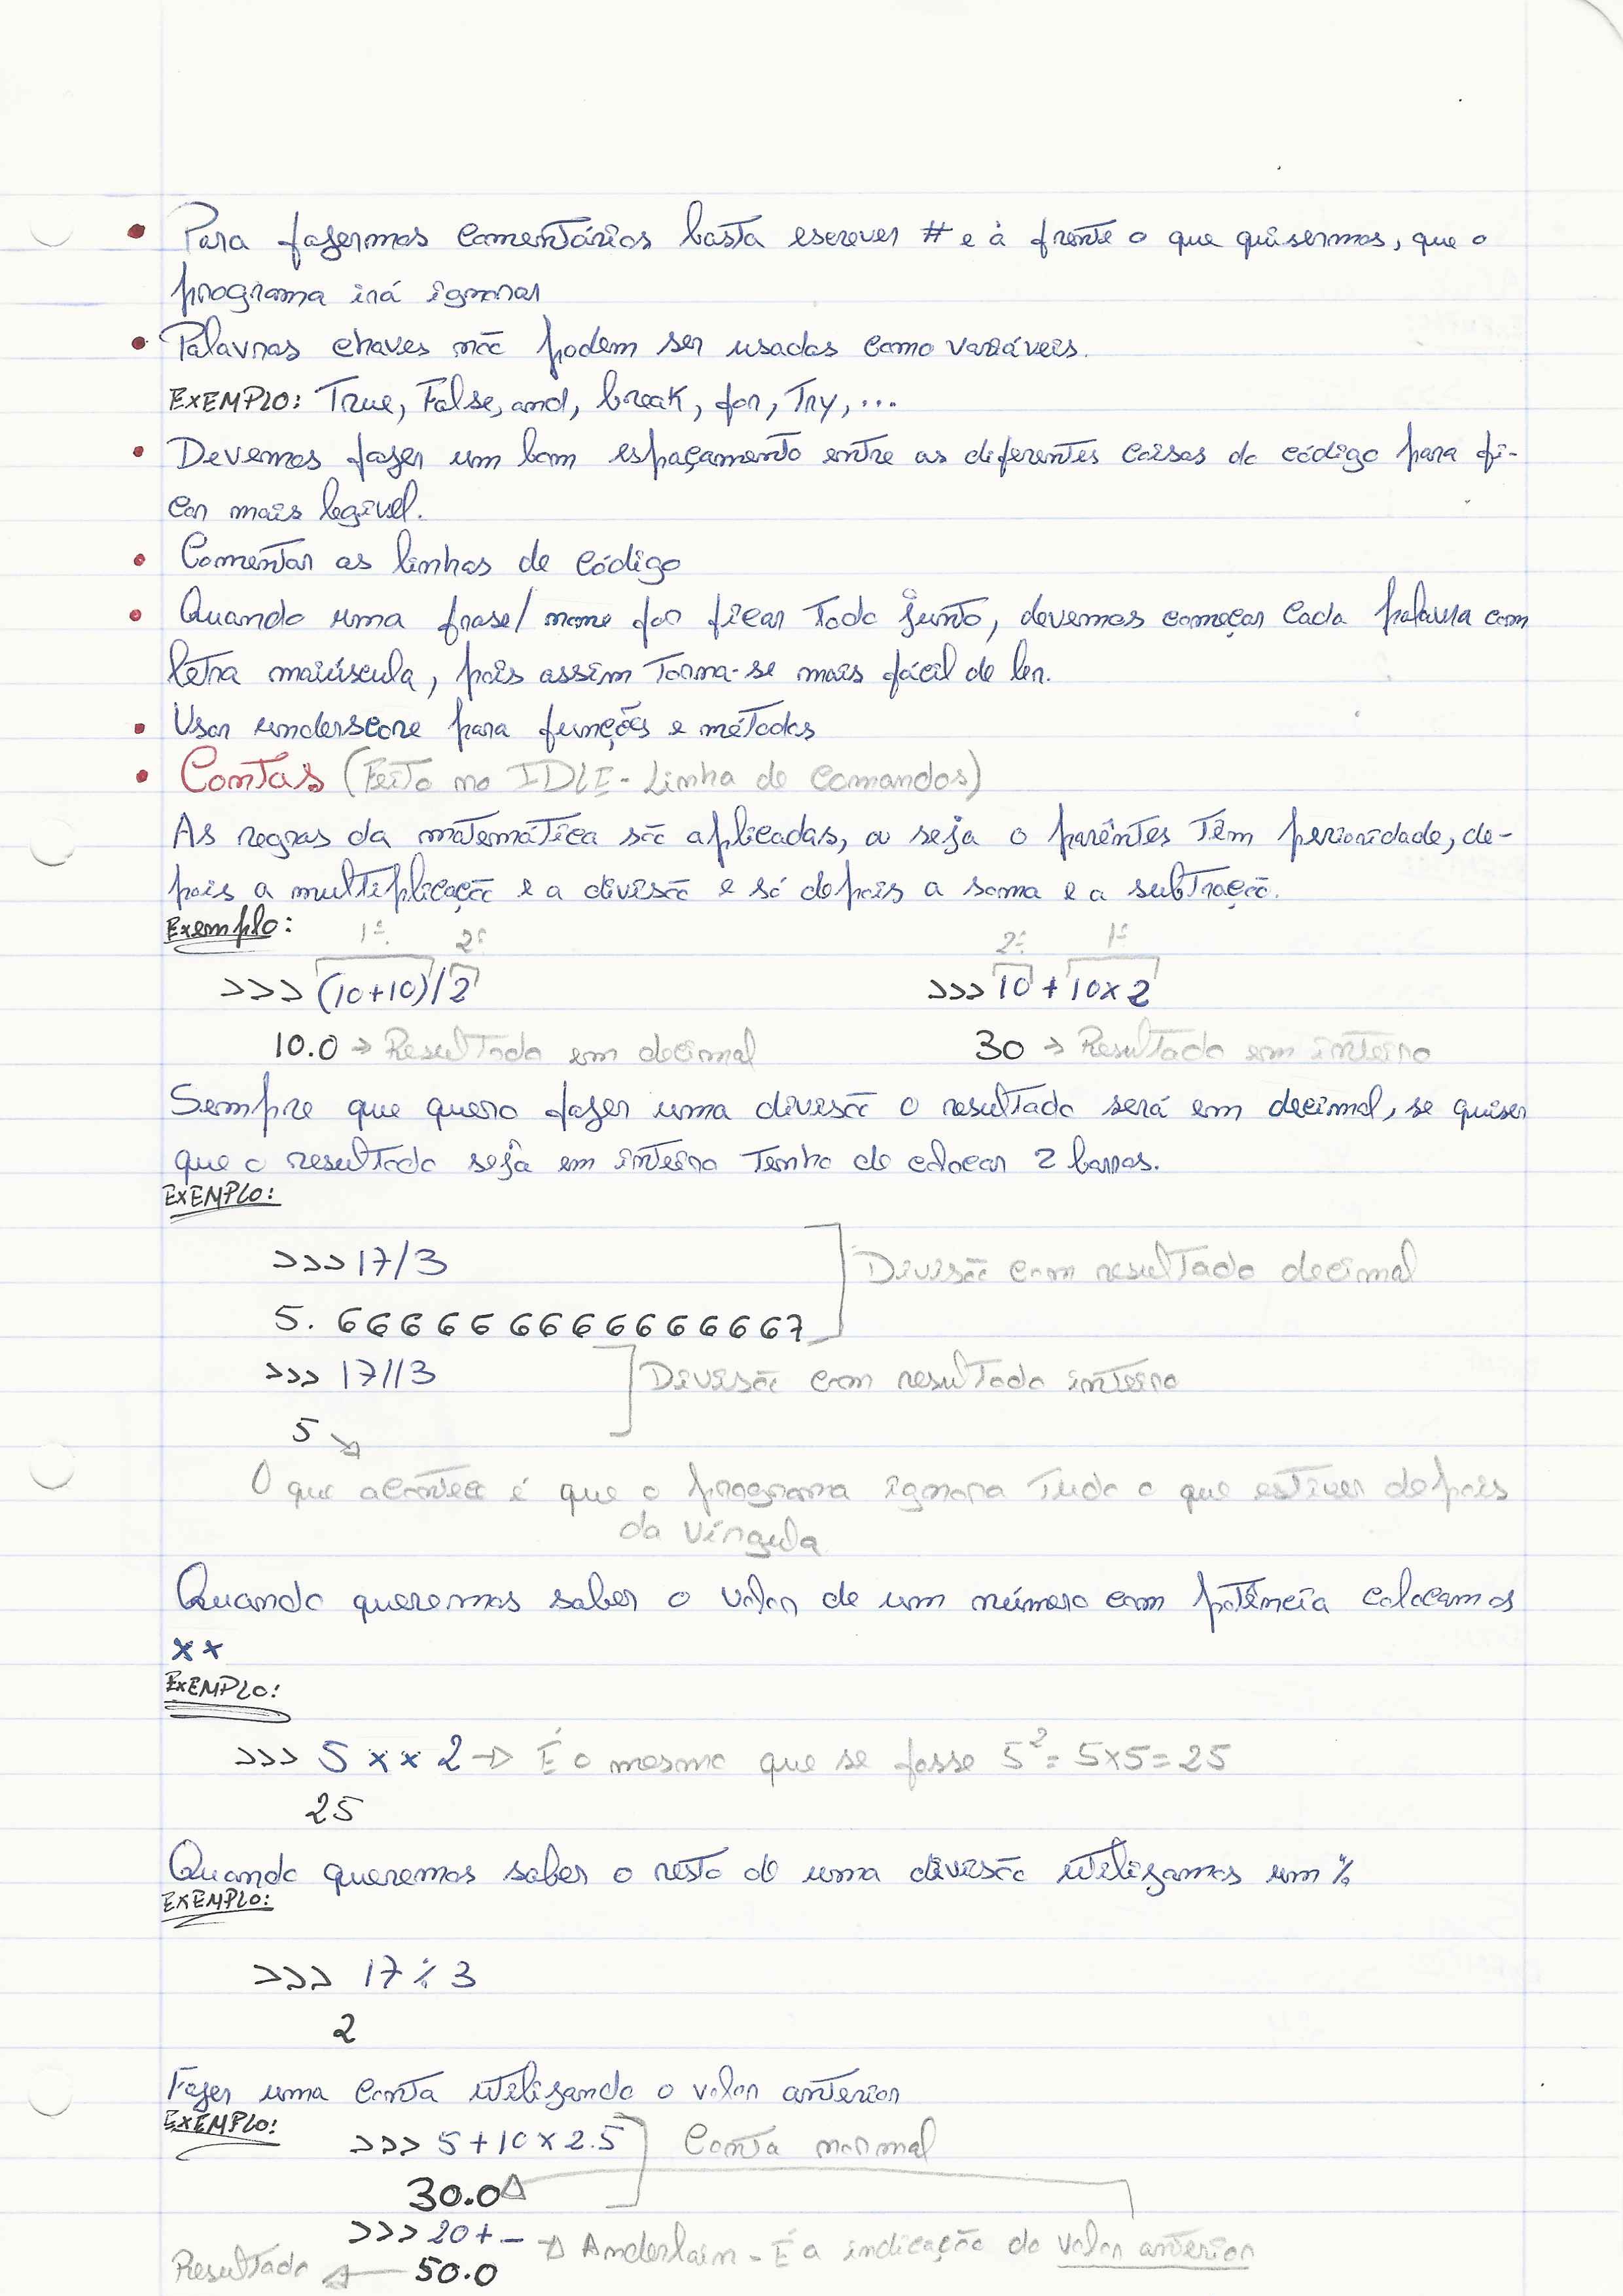 • Para fazermos comentários basta escrever # e à frente o que quisermos, que o
programa irá ignorar
• Palavras chaves não podem ser usadas como variáveis.
EXEMPLO: True, False, and, break, for, Try, ...
• Devemos fazer um bom espaçamento entre as diferentes coisas do código para fi-
car mais legível.
• Comentar as linhas de código
• Quando uma frase/nome for ficar todo junto, devemos começar cada palavra com
letra maiúscula, pois assim torna-se mais fácil de ler.
• Usar underscore para funções e métodos
• Contas (Feito no IDLE - Linha de comandos)
As regras da matemática são aplicadas, ou seja o parêntes têm perioridade, de-
pois a multiplicação e a divisão e só depois a soma e a subtração.
Exemplo: 1º 2º 2º 1º
>>> (10+10)/2 >>> 10 + 10x2
10.0 → Resultado em decimal 30 → Resultado em inteiro
Sempre que quero fazer uma divisão o resultado será em decimal, se quiser
que o resultado seja em inteiro tenho de colocar 2 barras.
EXEMPLO:
>>> 17/3 Divisão com resultado decimal
5. 666666666666667
>>> 17//3 Divisão com resultado inteiro
5
O que acontece é que o programa ignora tudo o que estiver depois
da vírgula
Quando queremos saber o valor de um número com potência colocamos
xx
EXEMPLO:
>>> 5 xx 2 → É o mesmo que se fosse 5² = 5x5 = 25
25
Quando queremos saber o resto de uma divisão utilizamos um %
EXEMPLO:
>>> 17 % 3
2
Fazer uma conta utilizando o valor anterior
EXEMPLO: >>> 5 + 10 x 2.5 Conta normal
30.0
>>> 20 + _ → Anderlain - É a indicação do valor anterior
Resultado ← 50.0